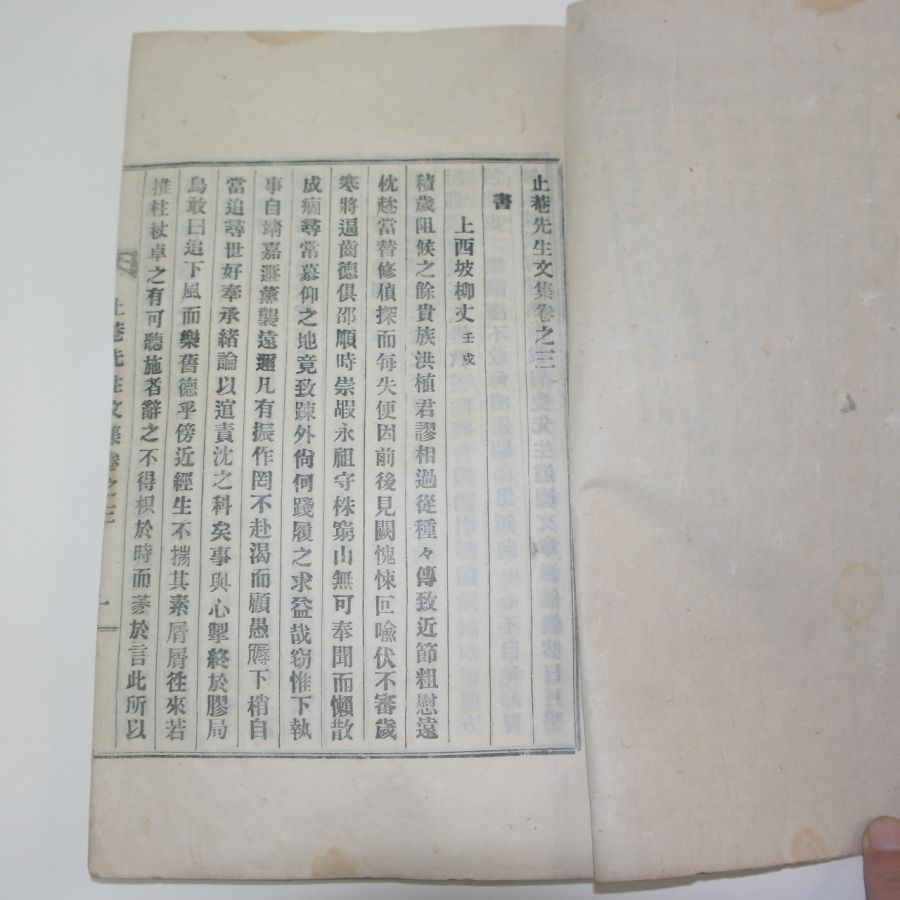 止菴先生文集卷之三
書
上西坡柳丈 壬戌
積歲阻候之餘貴族洪植君謬相過從種々傳致近節粗慰遠
枕趂當替修偵探而每失便因前後見闕愧悚回喩伏不審歲
寒將逼齒德俱邵順時崇嘏永祖守株窮山無可奉聞而懶散
成痼尋常慕仰之地竟致踈外尙何踐履之求益哉窃惟下執
事自靖嘉遯薰襲遠邇凡有振作罔不赴渴而顧愚下梢自
當追尋世好奉承緖論以逭責沈之科矣事與心掣終於膠局
烏敢曰追下風而樂舊德乎傍近經生不揣其素屑屑徃來若
推柱杖卓之有可聽施者辭之不得棖於時而蔆於言此所以
止菴先生文集卷之三 一